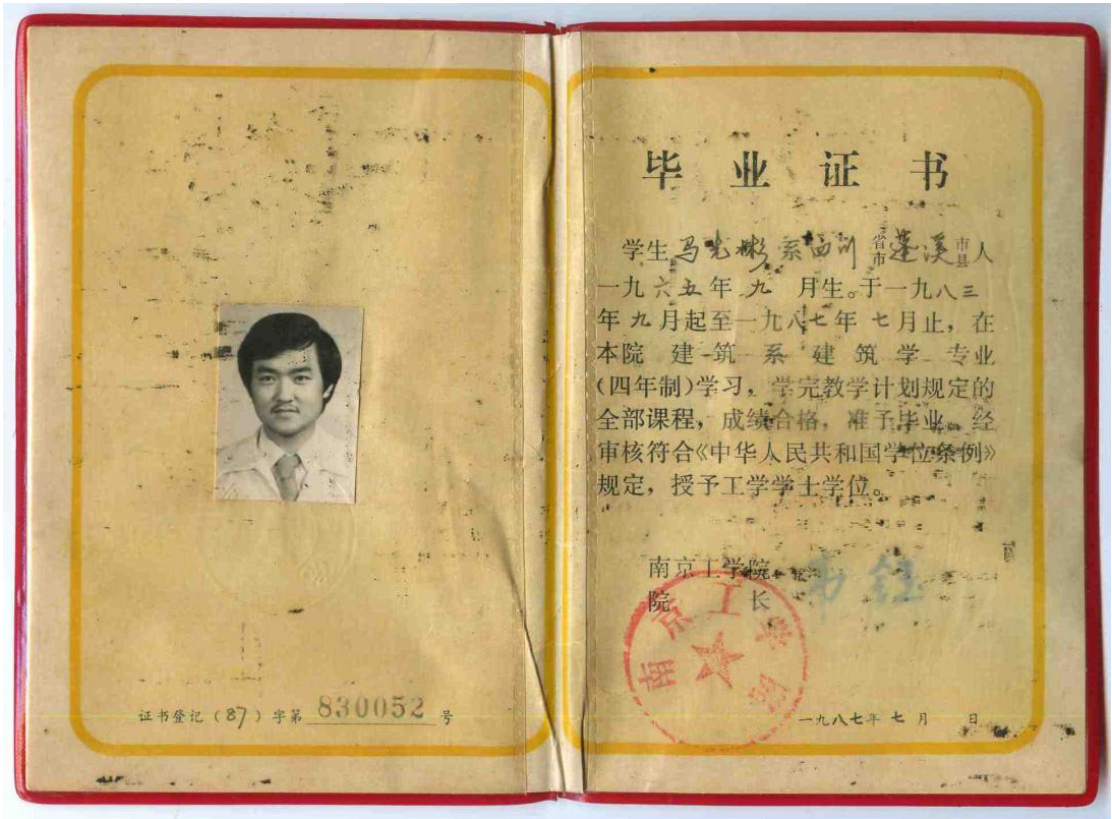 证书登记（87）字第 830052 号
毕业证书
学生马光彬系四川省市蓬溪市县人
一九六五年九月生。于一九八三
年九月起至一九八七年七月止，在
本院建筑系建筑学专业
（四年制）学习，学完教学计划规定的
全部课程，成绩合格，准予毕业。经
审核符合《中华人民共和国学位条例》
规定，授予工学学士学位。
南京工学院
院长 韦钰
南京工学院
一九八七年七月 日